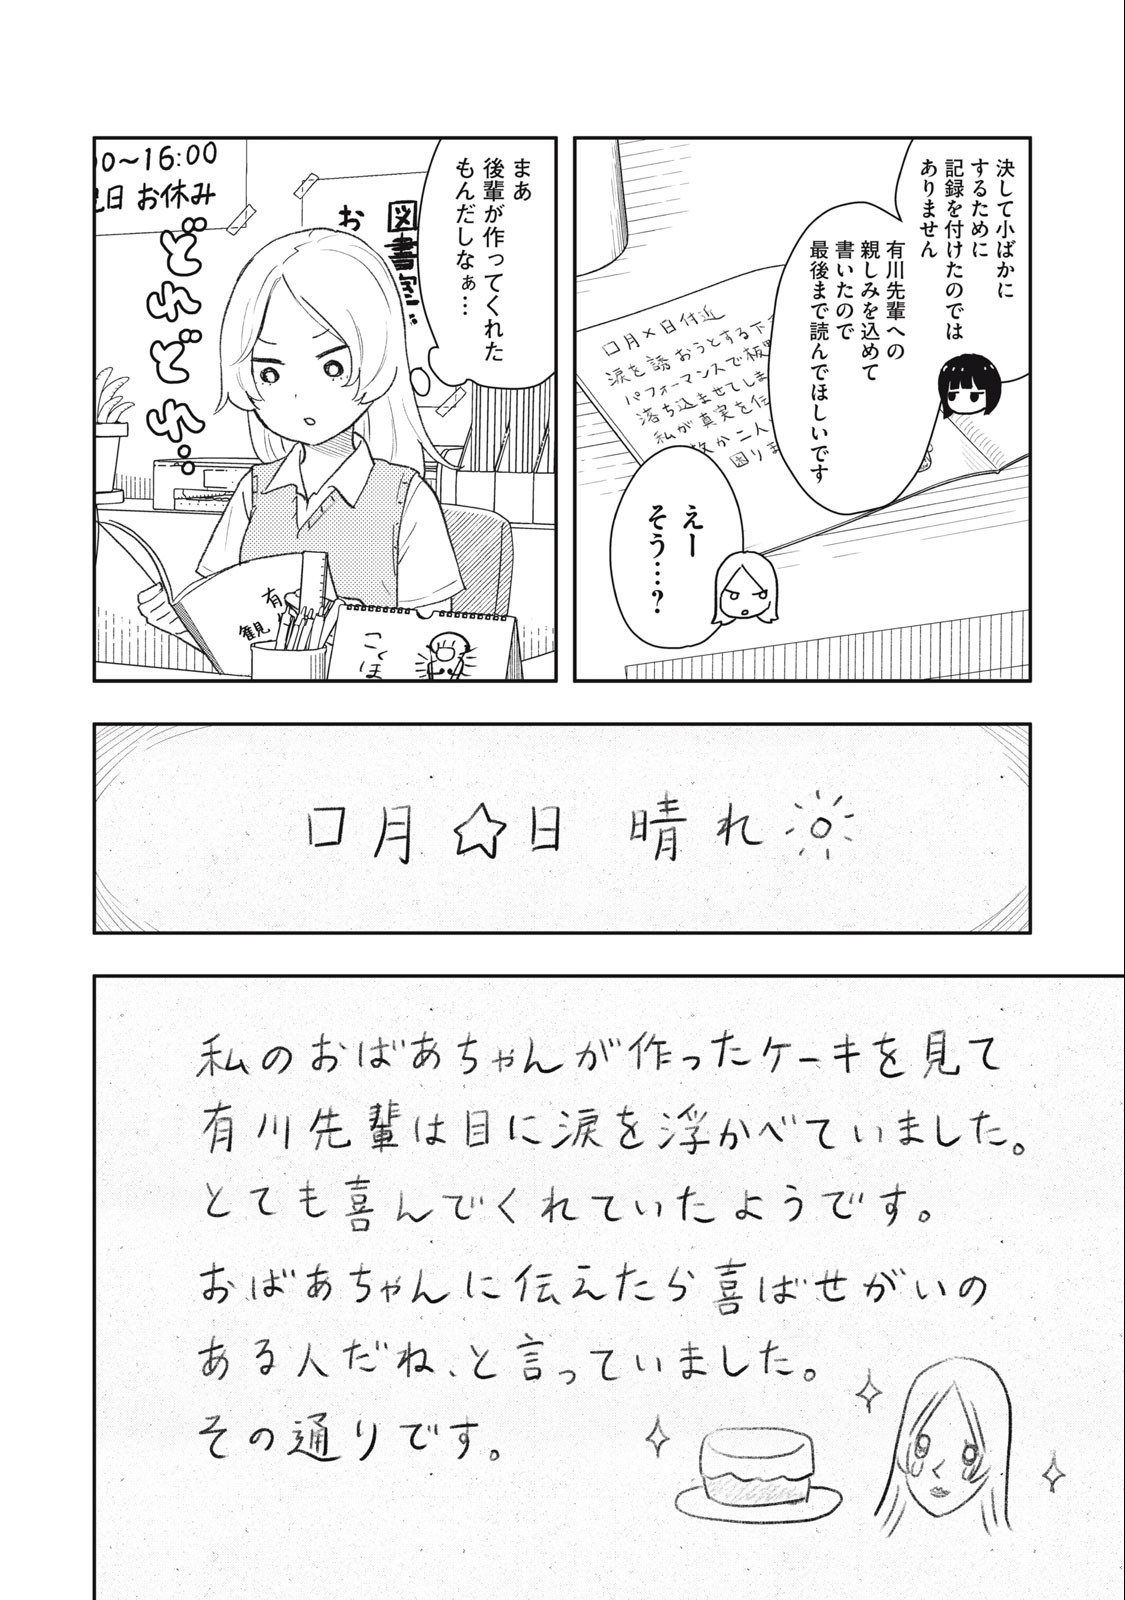 決して小ばかに
するために
記録を付けたのでは
ありません
有川先輩への
親しみを込めて
書いたので
最後まで読んでほしいです
口月×日付近
涙を誘おうとする下
パフォーマンスで板
落ち込ませてしま
私が真実を伝
故か二人
困りま
えー
そう…?
まあ
後輩が作ってくれた
もんだしなぁ…
00〜16:00
日 お休み
図書室
お
どれどれ…
有
観
こくほ
口月☆日 晴れ
私のおばあちゃんが作ったケーキを見て
有川先輩は目に涙を浮かべていました。
とても喜んでくれていたようです。
おばあちゃんに伝えたら喜ばせがいの
ある人だね、と言っていました。
その通りです。